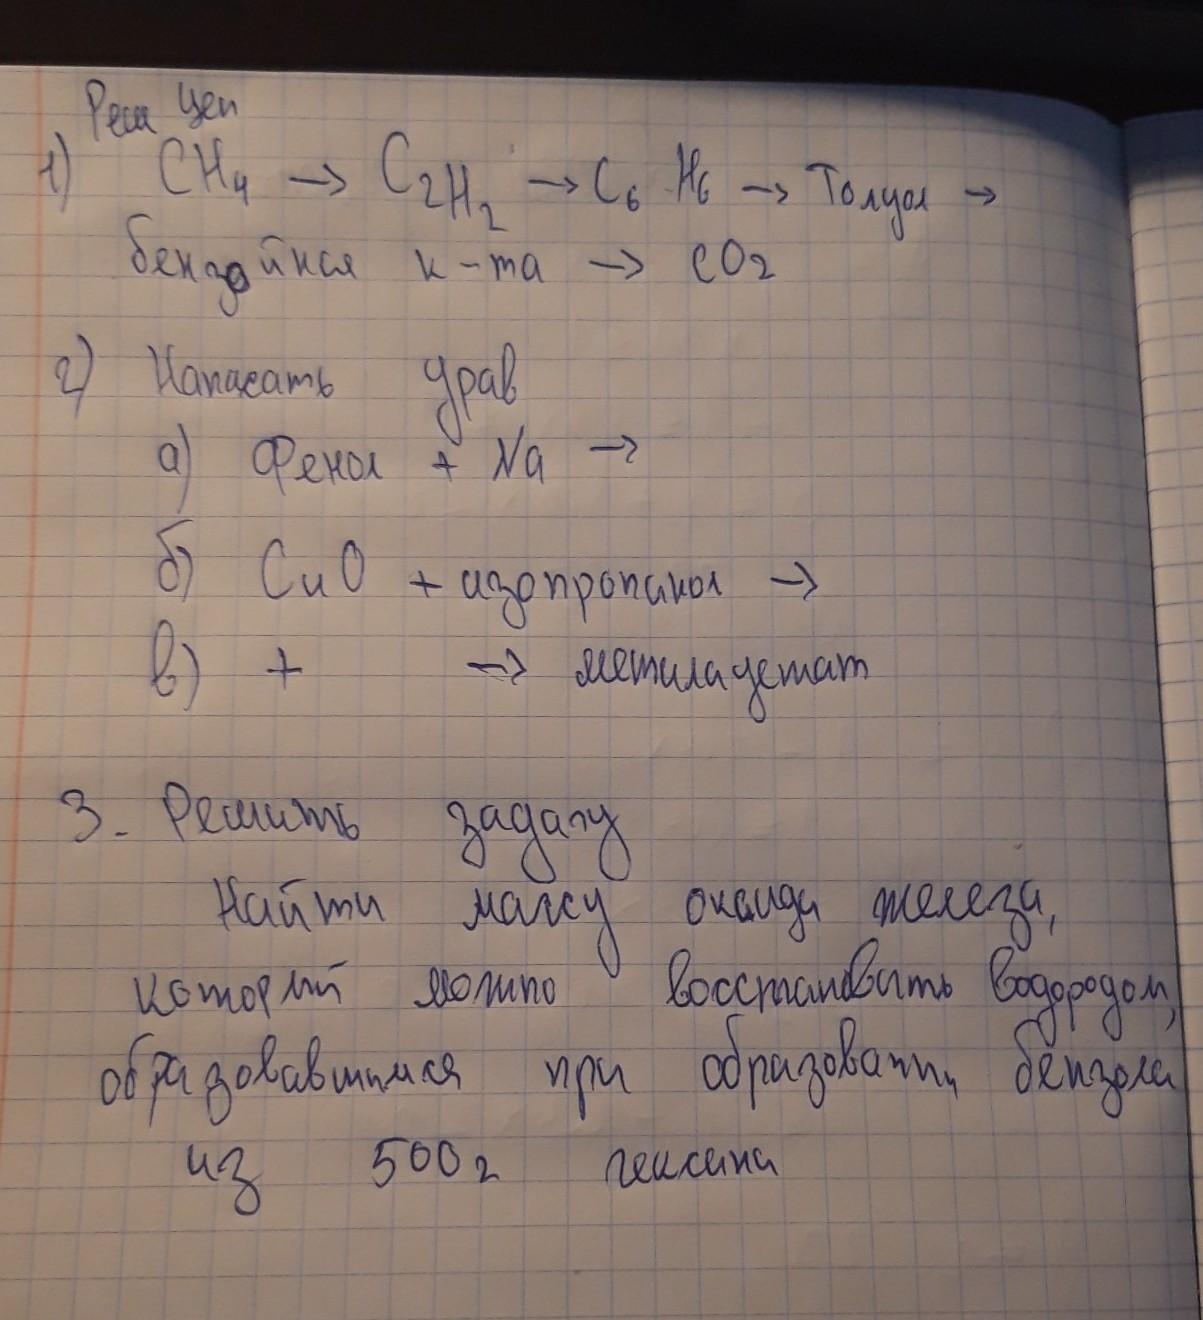 Реш цеп
1) CH4 → C2H2 → C6H6 → Толуол →
бензойная к-та → CO2
2) Написать урав
а) Фенол + Na →
б) CuO + изопропанол →
в) + → метилацетат
3. Решить задачу
Найти массу оксида железа,
который можно восстановить водородом,
образовавшимся при образовании бензола
из 500 г гексана